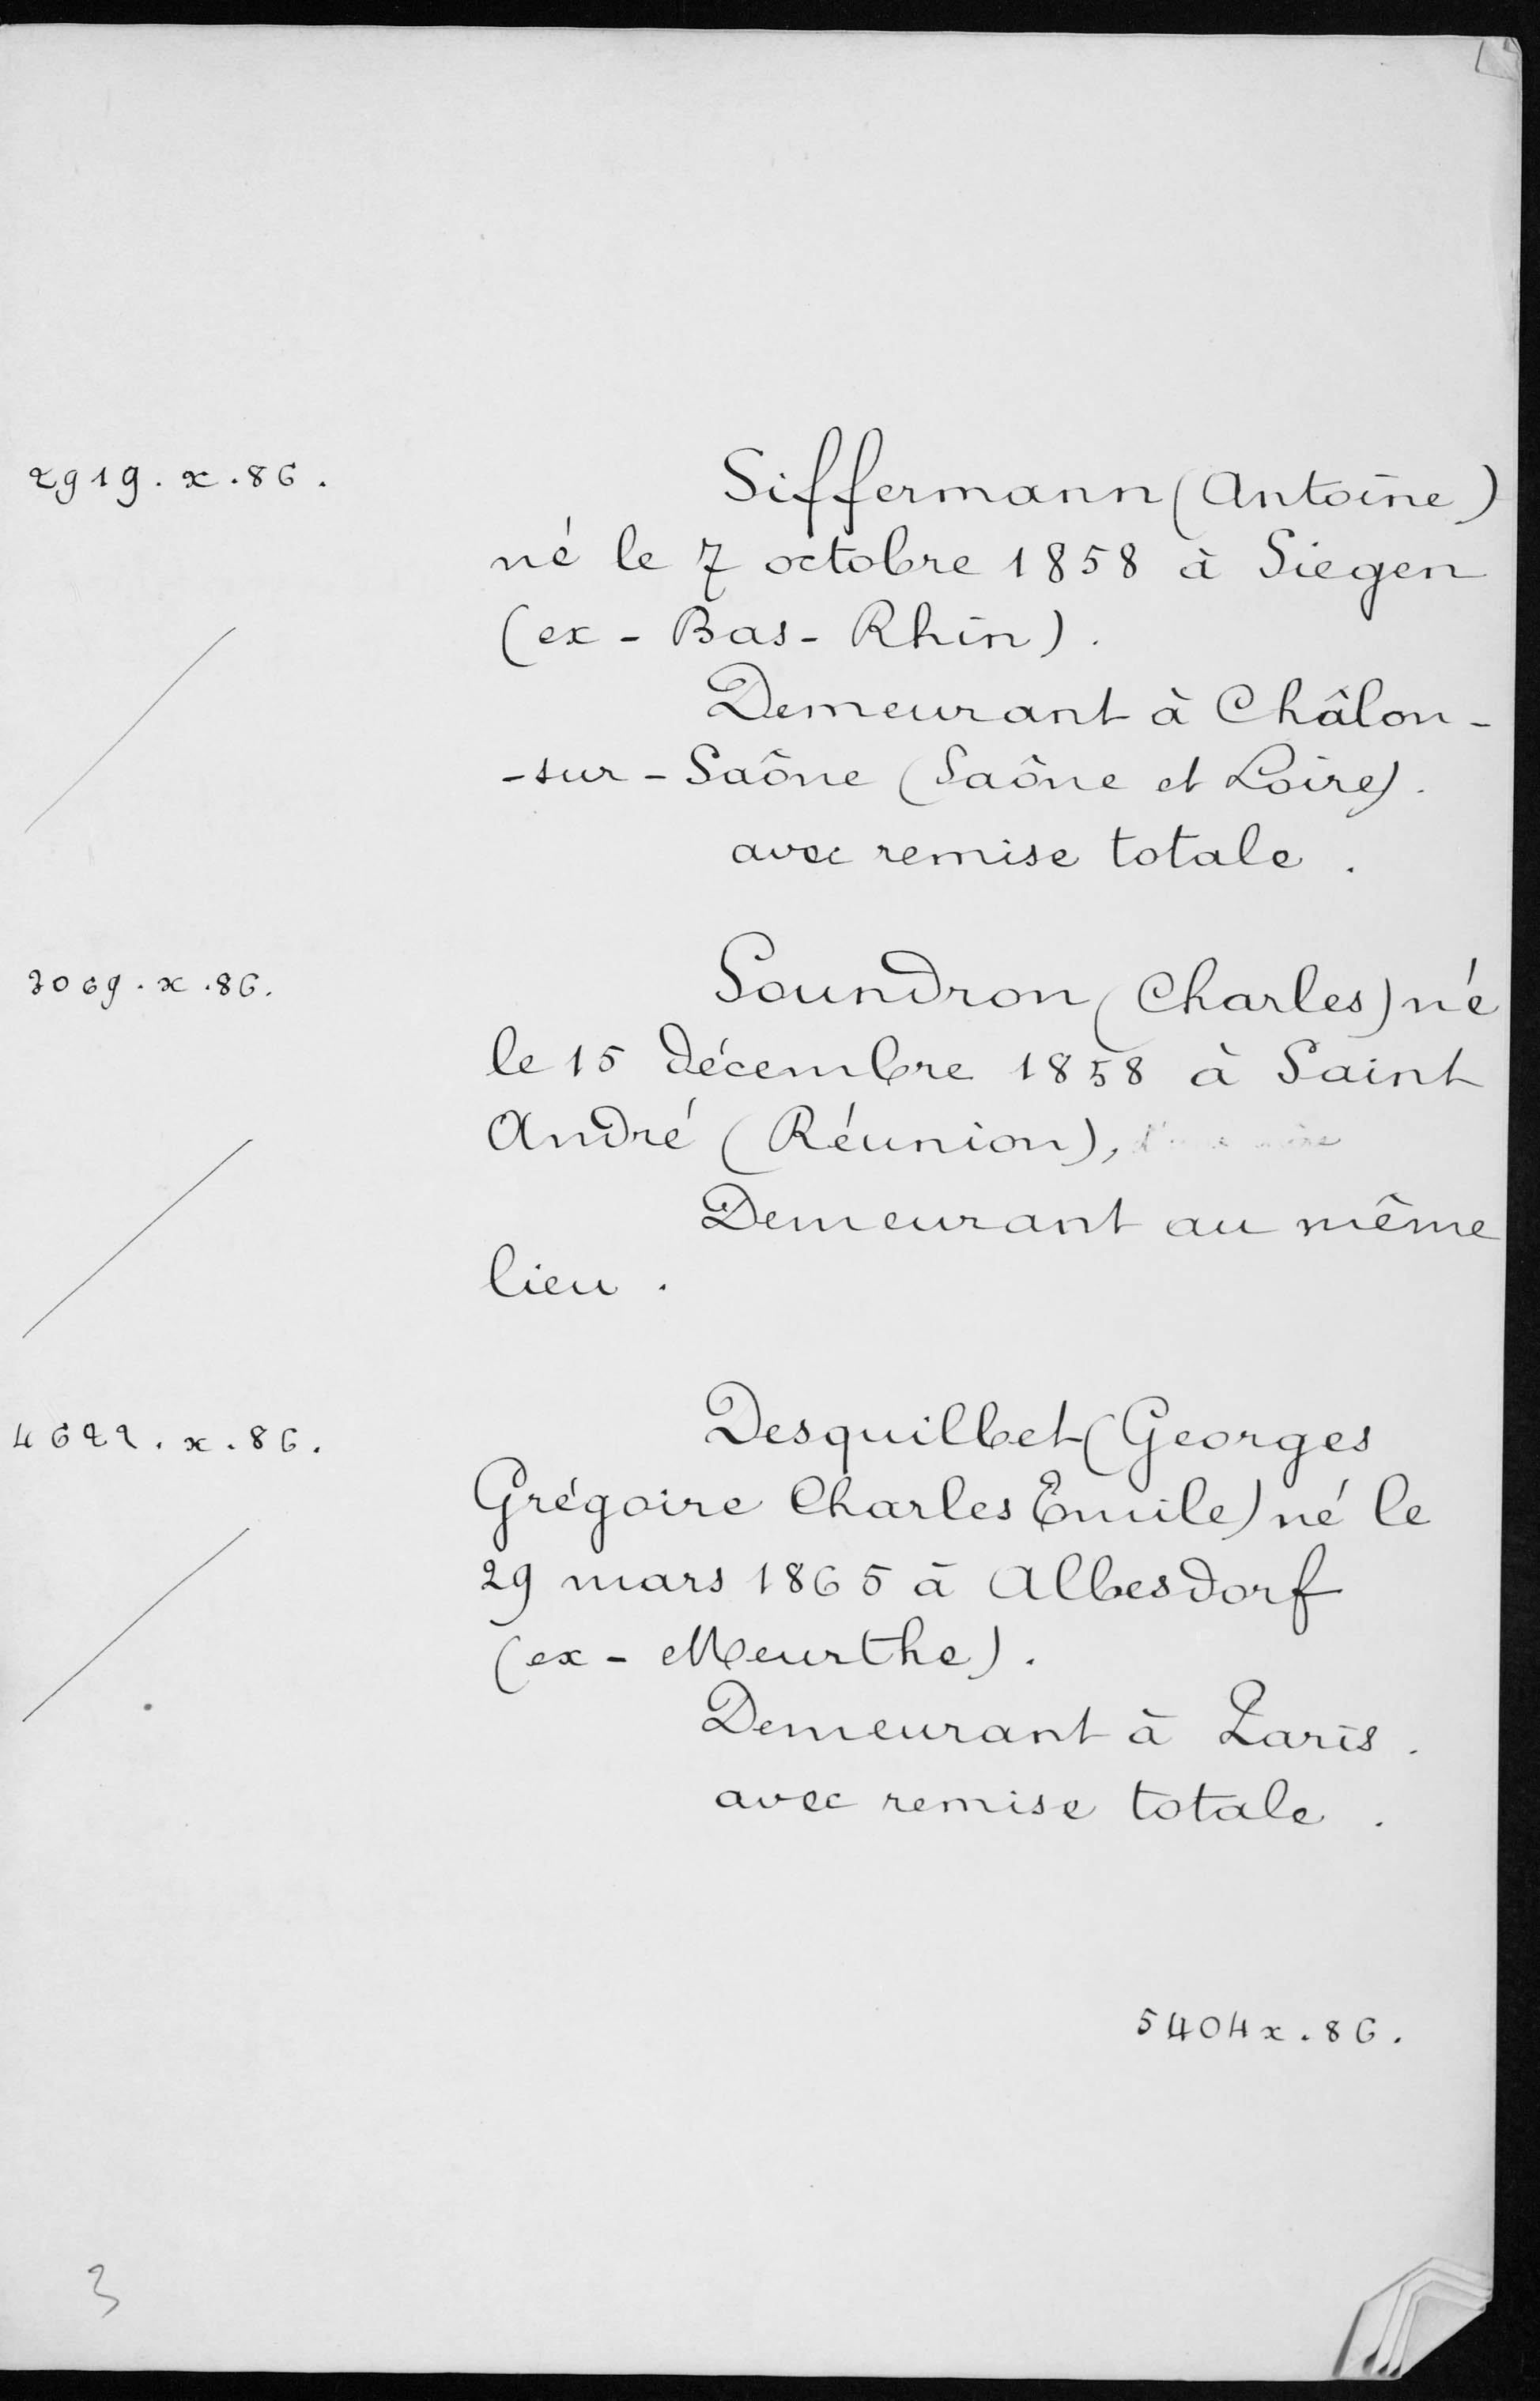 2919.x.86.
Siffermann (Antoine)
né le 7 octobre 1858 à Siegen
(ex-Bas-Rhin).
Demeurant à Châlon-
-sur-Saône (Saône et Loire).
avec remise totale.
3069.x.86.
Soundron (Charles) né
le 15 décembre 1858 à Saint
André (Réunion),
Demeurant au même
lieu.
4622.x.86.
Desquilbet (Georges
Grégoire Charles Emile) né le
29 mars 1865 à Albesdorf
(ex-Meurthe).
Demeurant à Paris.
avec remise totale.
5404x.86.
3